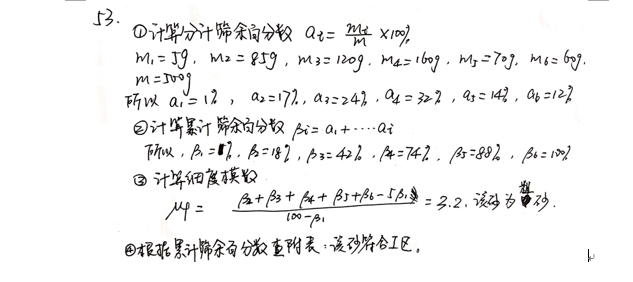 53.
①计算分计筛余百分数 ai = mi/m ×100%
m1=5g, m2=85g, m3=120g, m4=160g, m5=70g, m6=60g.
m=500g
所以 a1=1%, a2=17%, a3=24%, a4=32%, a5=14%, a6=12%
②计算累计筛余百分数 βi=a1+····ai
所以, β1=1%, β2=18%, β3=42%, β4=74%, β5=88%, β6=100%
③计算细度模数
μf = (β2+β3+β4+β5+β6-5β1)/(100-β1) = 3.2. 该砂为粗砂.
④根据累计筛余百分数查附表:该砂符合I区。